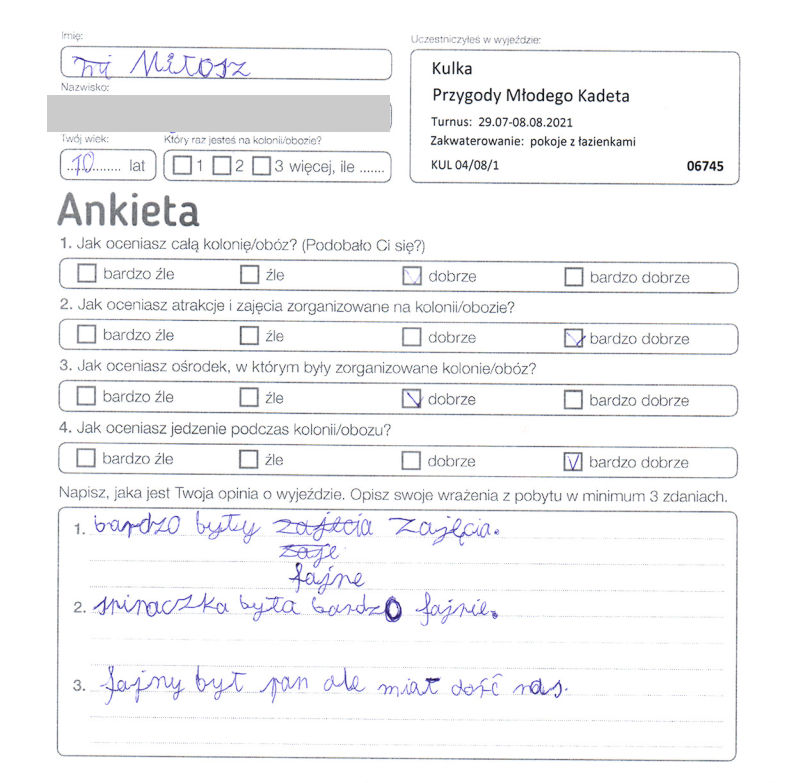 Imię:
Miłosz
Nazwisko:
Twój wiek:
10 lat
Który raz jesteś na kolonii/obozie?
1 2 3 więcej, ile .......
Uczestniczyłeś w wyjeździe:
Kulka
Przygody Młodego Kadeta
Turnus: 29.07-08.08.2021
Zakwaterowanie: pokoje z łazienkami
KUL 04/08/1 06745
Ankieta
1. Jak oceniasz całą kolonię/obóz? (Podobało Ci się?)
bardzo źle źle dobrze bardzo dobrze
2. Jak oceniasz atrakcje i zajęcia zorganizowane na kolonii/obozie?
bardzo źle źle dobrze bardzo dobrze
3. Jak oceniasz ośrodek, w którym były zorganizowane kolonie/obóz?
bardzo źle źle dobrze bardzo dobrze
4. Jak oceniasz jedzenie podczas kolonii/obozu?
bardzo źle źle dobrze bardzo dobrze
Napisz, jaka jest Twoja opinia o wyjeździe. Opisz swoje wrażenia z pobytu w minimum 3 zdaniach.
1. bardzo były zajęcia zajęcia.
zaje
fajne
2. spinaczka była bardzo fajnie.
3. fajny był pan ale miał dość nas.